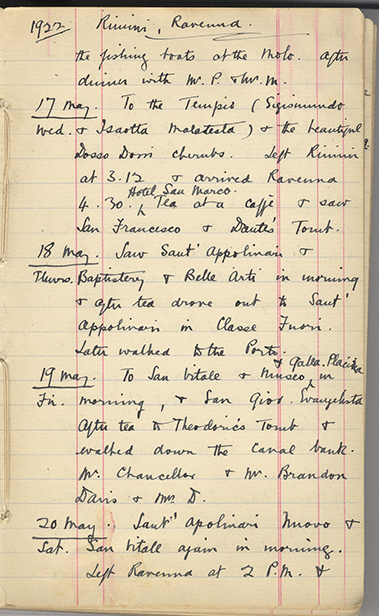 1922 Rimini, Ravenna.
the fishing boats at the Molo. After
dinner with Mr. P. & Mr. M.
17 May. To the Tempio (Sigismundo
Wed. & Isaotta Malatesta) & the beautiful
Dosso Dossi cherubs. Left Rimini
at 3.12 & arrived Ravenna
Hotel San Marco.
4.30. Tea at a caffè & saw
San Francisco & Dante's Tomb.
18 May. Saw Sant' Appolinari &
Thurs. Baptistery & Belle Arti in morning
& after tea drove out to Sant'
Appolinari in Classe Fuori.
Later walked to the Porto.
& Galla. Placidia
19 May. To San Vitale & Museo in
Fri. morning, & San Giov. Evangelista
After tea to Theodoric's Tomb &
walked down the canal bank.
Mr. Chancellor & Mr. Brandon
Davis & Mrs D.
20 May. Sant' Apolinari Nuovo &
Sat. San Vitale again in morning.
Left Ravenna at 2 P.M. &